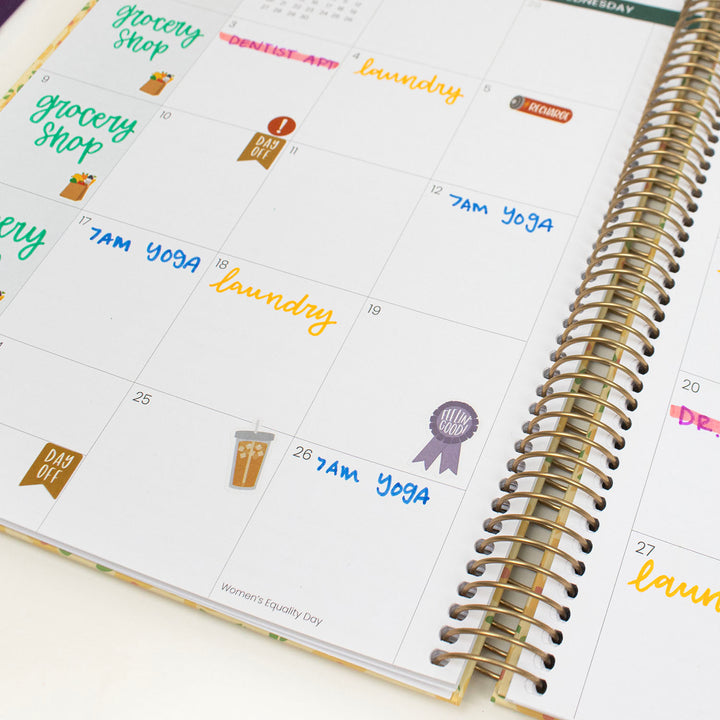 WEDNESDAY
grocery
shop
3
DENTIST APT
4
laundry
5
RECHARGE
9
grocery
shop
10
!
DAY
OFF
11
12
7AM YOGA
cery
17
7AM YOGA
18
laundry
19
FEELIN'
GOOD!
4
DAY
OFF
25
26
7AM YOGA
Women's Equality Day
20
DR.
27
laun